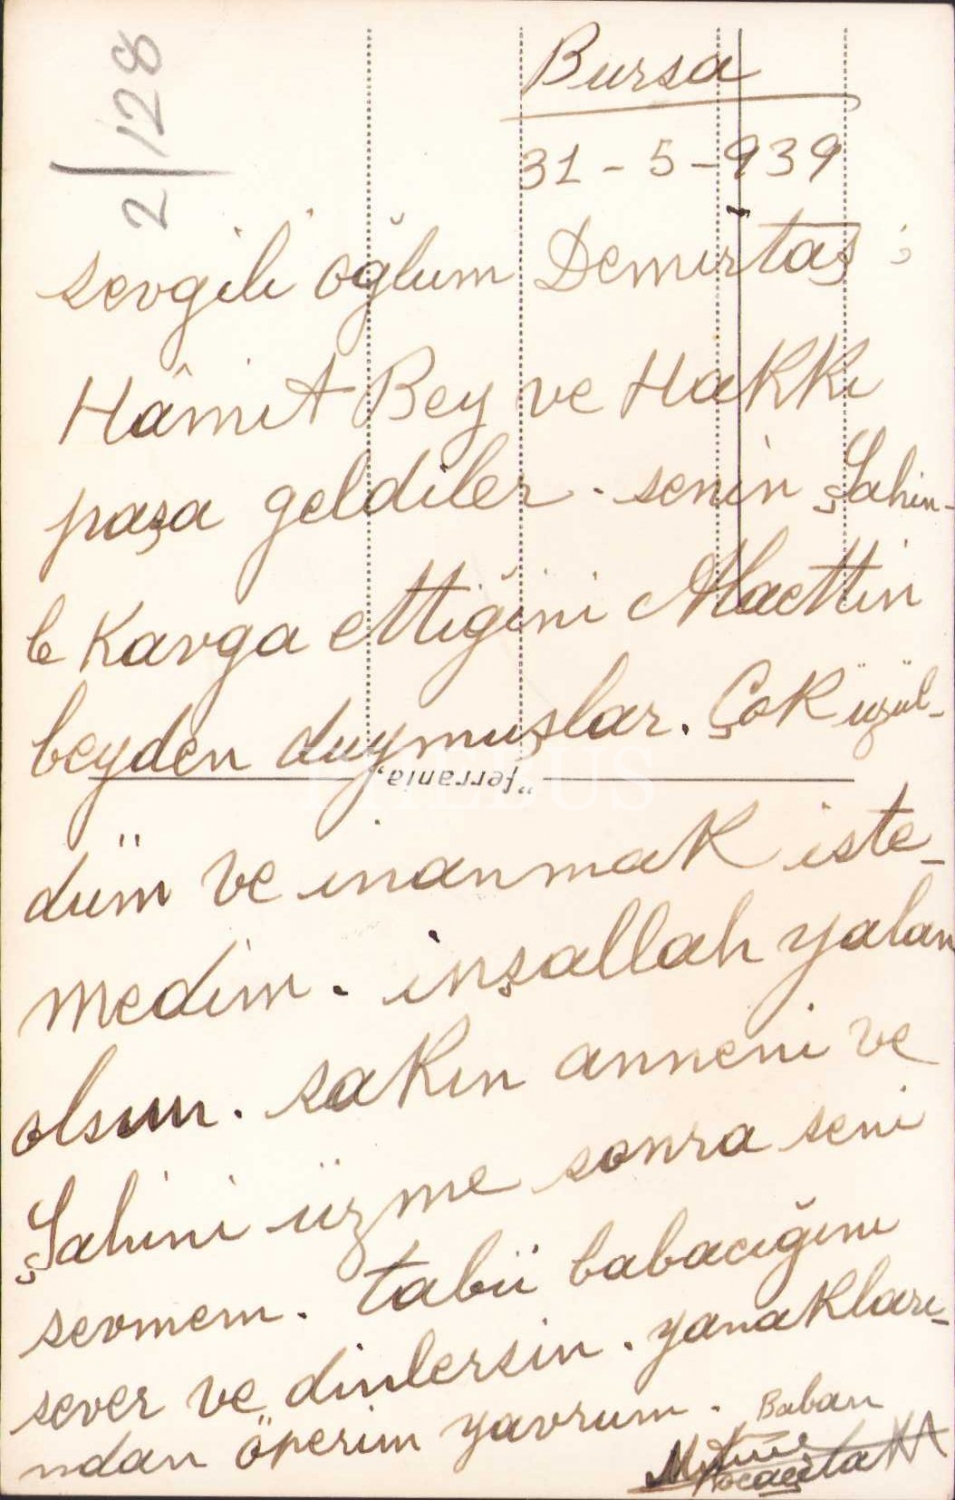 2/128
Bursa
31-5-939
sevgili oğlum Demirtaş ;
Hâmit Bey ve Hakkı
paşa geldiler. senin Şahin-
le kavga ettiğini Alaettin
beyden duymuşlar. Çok üzül-
"ferrania"
düm ve inanmak iste-
medim. inşallah yalan
olsun. sakın anneni ve
Şahini üzme sonra seni
sevmem. tabii babacığını
sever ve dinlersin. yanakları-
ndan öperim yavrum. Baban
PHEBUS